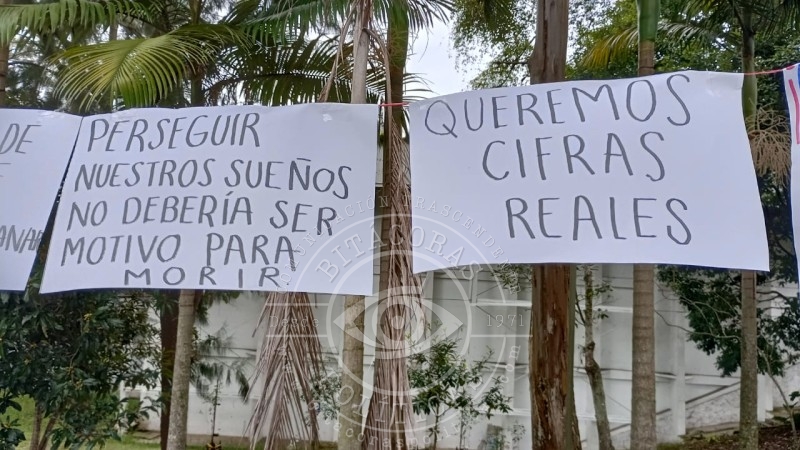 DE
PERSEGUIR
NUESTROS SUEÑOS
NO DEBERÍA SER
MOTIVO PARA
MORIR
QUEREMOS
CIFRAS
REALES
BITÁCORAS
1971